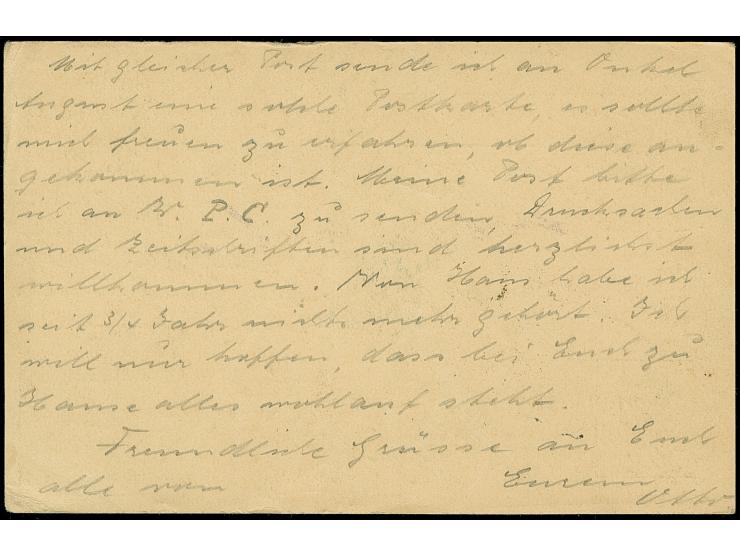 Mit gleicher Post sende ich an Onkel
August eine solche Postkarte, es sollte
mich freuen zu erfahren, ob diese an-
gekommen ist. Meine Post bitte
ich an W. P. C. zu senden, Drucksachen
und Zeitschriften sind herzlichst
willkommen. Von Hans habe ich
seit 3/4 Jahr nichts mehr gehört. Ich
will nur hoffen, dass bei Euch zu
Hause alles wohlauf steht.
Freundliche Grüsse an Euch
alle von Eurem Otto